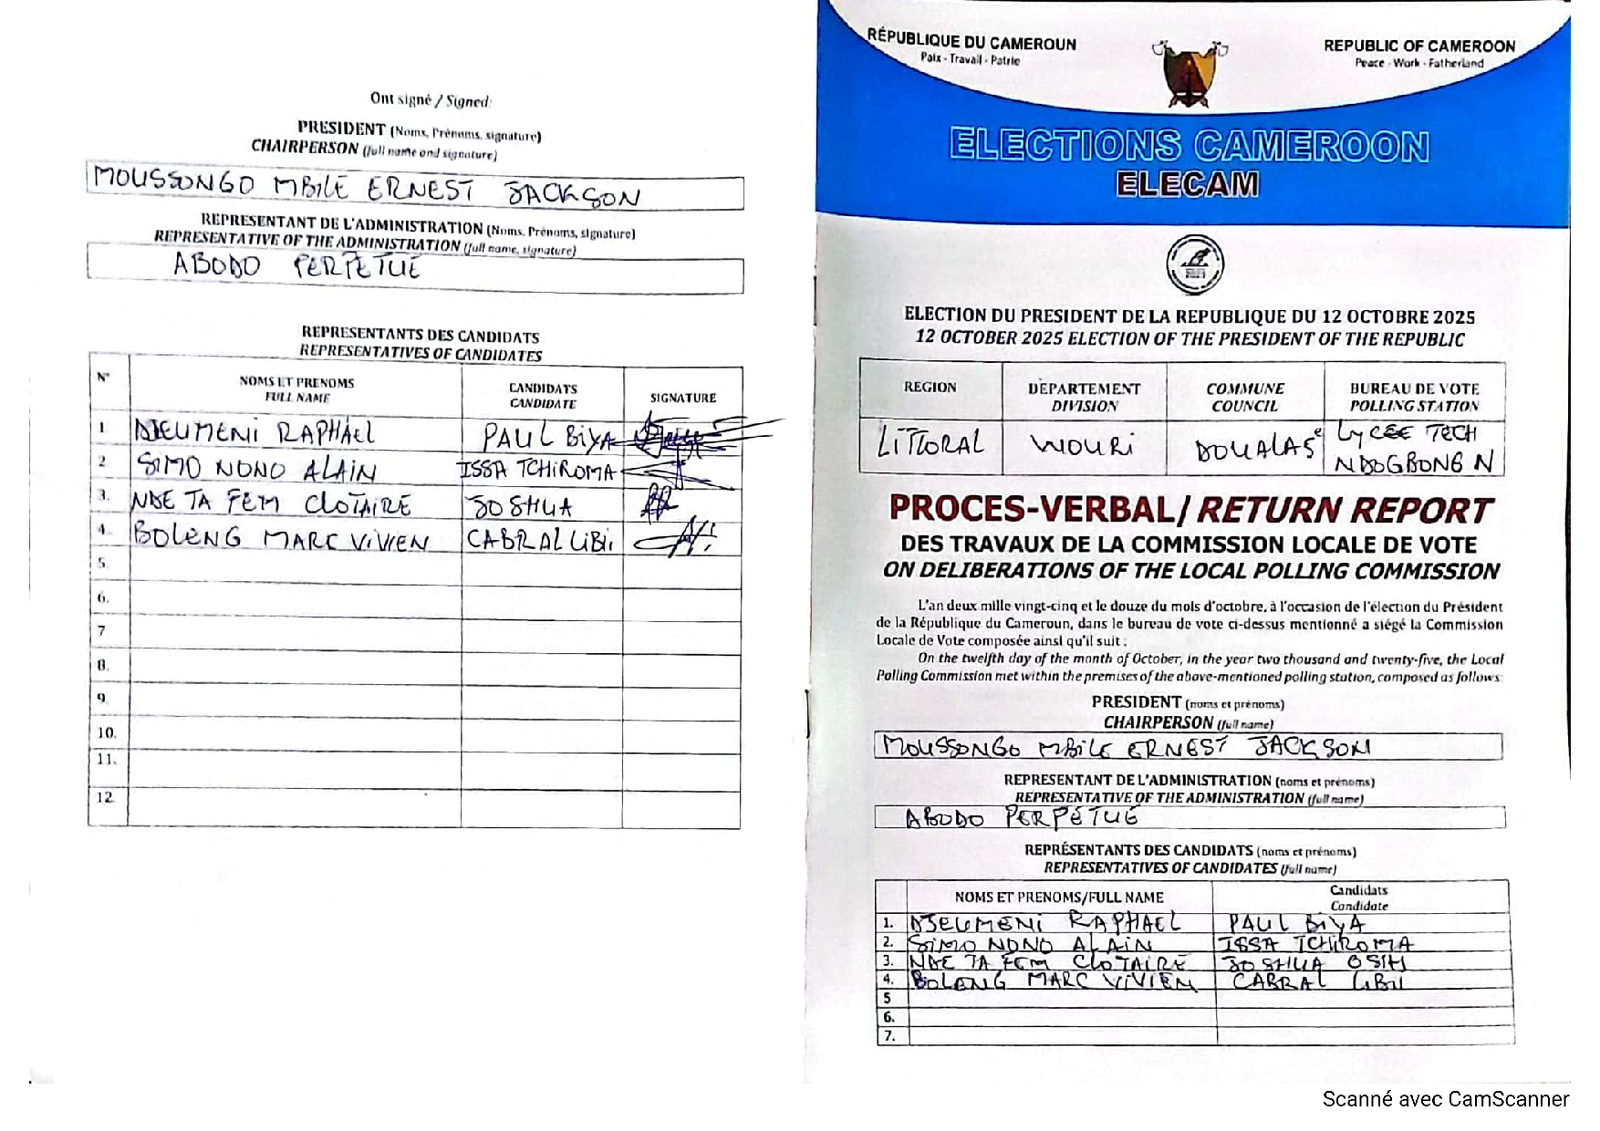 Ont signé / Signed:
PRESIDENT (Noms, Prénoms, signature)
CHAIRPERSON (full name and signature)
MOUSSONGO MBILE ERNEST JACKSON
REPRESENTANT DE L'ADMINISTRATION (Noms, Prénoms, signature)
REPRESENTATIVE OF THE ADMINISTRATION (full name, signature)
ABODO PERPÉTUE
REPRESENTANTS DES CANDIDATS
REPRESENTATIVES OF CANDIDATES
N° NOMS ET PRENOMS CANDIDATS SIGNATURE
FULL NAME CANDIDATE
1 DJEUMENI RAPHAEL PAUL BIYA
2 SIMO NONO ALAIN ISSA TCHIROMA
3. NDE TA FEM CLOTAIRE JOSHUA
4. BOLENG MARC VIVIEN CABRAL LIBII
5.
6.
7
8.
9.
10.
11.
12
RÉPUBLIQUE DU CAMEROUN
Paix - Travail - Patrie
REPUBLIC OF CAMEROON
Peace - Work - Fatherland
ELECTIONS CAMEROON
ELECAM
ELECTION DU PRESIDENT DE LA REPUBLIQUE DU 12 OCTOBRE 2025
12 OCTOBER 2025 ELECTION OF THE PRESIDENT OF THE REPUBLIC
REGION DEPARTEMENT COMMUNE BUREAU DE VOTE
DIVISION COUNCIL POLLING STATION
LITTORAL WOURI DOUALA 5e LYCEE TECH
NDOGBONG N
PROCES-VERBAL/ RETURN REPORT
DES TRAVAUX DE LA COMMISSION LOCALE DE VOTE
ON DELIBERATIONS OF THE LOCAL POLLING COMMISSION
L'an deux mille vingt-cinq et le douze du mois d'octobre, à l'occasion de l'élection du Président
de la République du Cameroun, dans le bureau de vote ci-dessus mentionné a siégé la Commission
Locale de Vote composée ainsi qu'il suit :
On the twelfth day of the month of October, in the year two thousand and twenty-five, the Local
Polling Commission met within the premises of the above-mentioned polling station, composed as follows:
PRESIDENT (noms et prénoms)
CHAIRPERSON (full name)
MOUSSONGO MBILE ERNEST JACKSON
REPRESENTANT DE L'ADMINISTRATION (noms et prénoms)
REPRESENTATIVE OF THE ADMINISTRATION (full name)
ABODO PERPÉTUE
REPRÉSENTANTS DES CANDIDATS (noms et prénoms)
REPRESENTATIVES OF CANDIDATES (full name)
NOMS ET PRENOMS/FULL NAME Candidats
Candidate
1. DJEUMENI RAPHAEL PAUL BIYA
2. SIMO NONO ALAIN ISSA TCHIROMA
3. NDE TA FEM CLOTAIRE JOSHUA OSIH
4. BOLENG MARC VIVIEN CABRAL LIBII
5
6.
7.
Scanné avec CamScanner